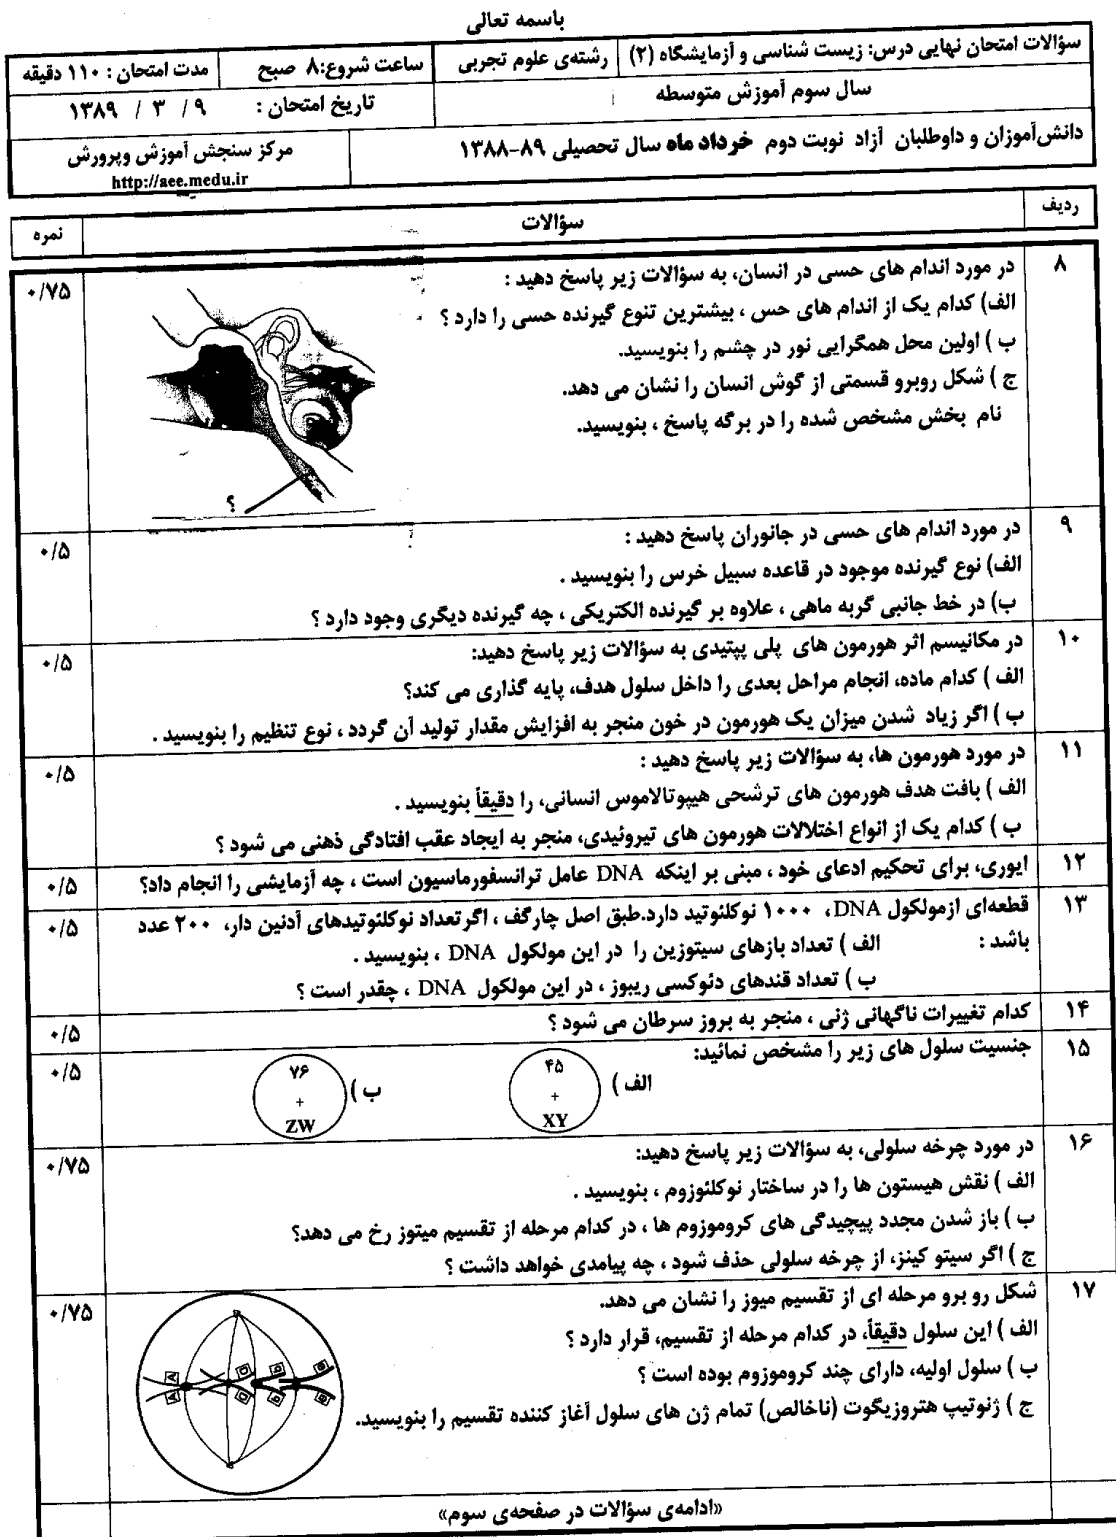 باسمه تعالی
سؤالات امتحان نهایی درس: زیست شناسی و آزمایشگاه (۲)
رشته‌ی علوم تجربی
ساعت شروع:۸ صبح
مدت امتحان : ۱۱۰ دقیقه
سال سوم آموزش متوسطه
تاریخ امتحان : ۹ / ۳ / ۱۳۸۹
دانش‌آموزان و داوطلبان آزاد نوبت دوم خرداد ماه سال تحصیلی ۸۹-۱۳۸۸
مرکز سنجش آموزش وپرورش
http://aee.medu.ir
ردیف
سؤالات
نمره
۸
در مورد اندام های حسی در انسان، به سؤالات زیر پاسخ دهید :
۰/۷۵
الف) کدام یک از اندام های حس ، بیشترین تنوع گیرنده حسی را دارد ؟
ب ) اولین محل همگرایی نور در چشم را بنویسید.
ج ) شکل روبرو قسمتی از گوش انسان را نشان می دهد.
نام بخش مشخص شده را در برگه پاسخ ، بنویسید.
؟
۹
در مورد اندام های حسی در جانوران پاسخ دهید :
۰/۵
الف) نوع گیرنده موجود در قاعده سبیل خرس را بنویسید .
ب) در خط جانبی گربه ماهی ، علاوه بر گیرنده الکتریکی ، چه گیرنده دیگری وجود دارد ؟
۱۰
در مکانیسم اثر هورمون های پلی پپتیدی به سؤالات زیر پاسخ دهید:
۰/۵
الف ) کدام ماده، انجام مراحل بعدی را داخل سلول هدف، پایه گذاری می کند؟
ب ) اگر زیاد شدن میزان یک هورمون در خون منجر به افزایش مقدار تولید آن گردد ، نوع تنظیم را بنویسید .
۱۱
در مورد هورمون ها، به سؤالات زیر پاسخ دهید :
۰/۵
الف ) بافت هدف هورمون های ترشحی هیپوتالاموس انسانی، را دقیقاً بنویسید .
ب ) کدام یک از انواع اختلالات هورمون های تیروئیدی، منجر به ایجاد عقب افتادگی ذهنی می شود ؟
۱۲
ایوری، برای تحکیم ادعای خود ، مبنی بر اینکه DNA عامل ترانسفورماسیون است ، چه آزمایشی را انجام داد؟
۰/۵
۱۳
قطعه‌ای ازمولکول DNA، ۱۰۰۰ نوکلئوتید دارد.طبق اصل چارگف ، اگرتعداد نوکلئوتیدهای آدنین دار، ۲۰۰ عدد
۰/۵
باشد : الف ) تعداد بازهای سیتوزین را در این مولکول DNA ، بنویسید .
ب ) تعداد قندهای دئوکسی ریبوز ، در این مولکول DNA ، چقدر است ؟
۱۴
کدام تغییرات ناگهانی ژنی ، منجر به بروز سرطان می شود ؟
۰/۵
۱۵
جنسیت سلول های زیر را مشخص نمائید:
۰/۵
الف )
۴۵
+
XY
ب )
۷۶
+
ZW
۱۶
در مورد چرخه سلولی، به سؤالات زیر پاسخ دهید:
۰/۷۵
الف ) نقش هیستون ها را در ساختار نوکلئوزوم ، بنویسید .
ب ) باز شدن مجدد پیچیدگی های کروموزوم ها ، در کدام مرحله از تقسیم میتوز رخ می دهد؟
ج ) اگر سیتو کینز، از چرخه سلولی حذف شود ، چه پیامدی خواهد داشت ؟
۱۷
شکل رو برو مرحله ای از تقسیم میوز را نشان می دهد.
۰/۷۵
الف ) این سلول دقیقاً، در کدام مرحله از تقسیم، قرار دارد ؟
ب ) سلول اولیه، دارای چند کروموزوم بوده است ؟
ج ) ژنوتیپ هتروزیگوت (ناخالص) تمام ژن های سلول آغاز کننده تقسیم را بنویسید.
«ادامه‌ی سؤالات در صفحه‌ی سوم»